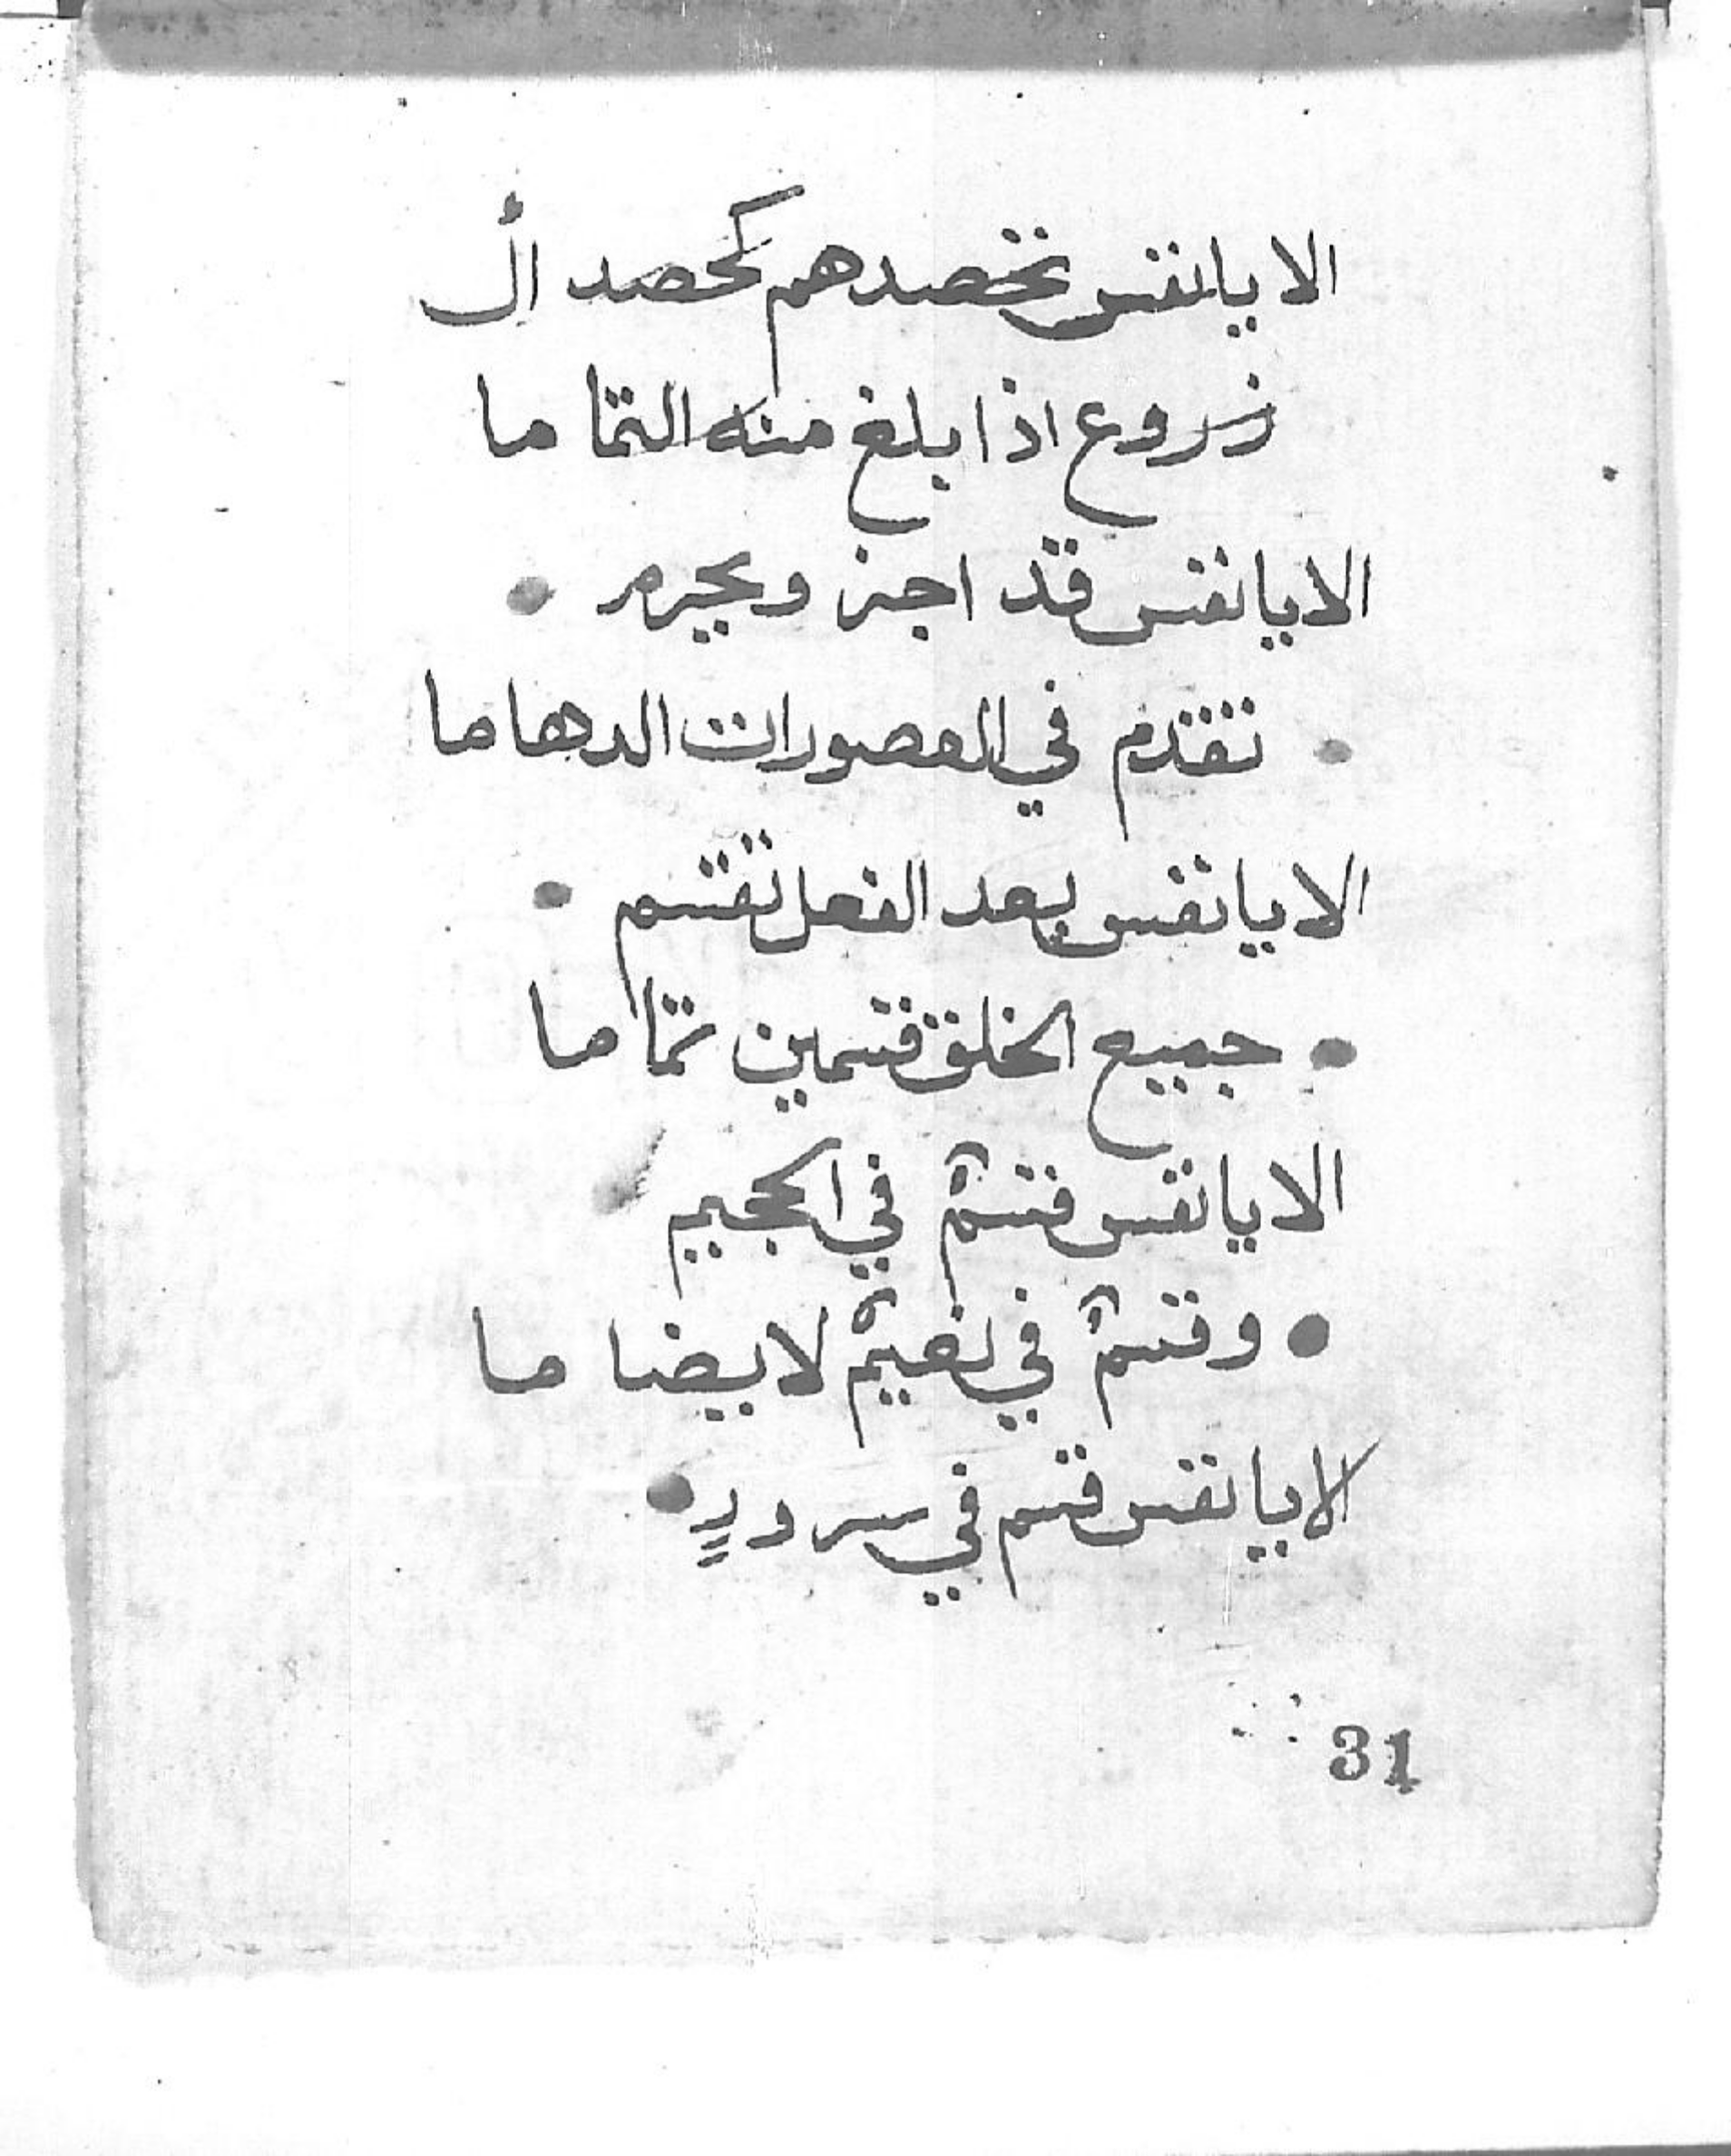 الا يا نفس تحصدهم كحصد ال
زروع اذا بلغ منه التما ما
الا يا نفس قد اجز ويجرم
تقدم في العصورات الدهاما
الا يا نفس بعد الفعل تقتسم
جميع الخلق قسمين تما ما
الا يا نفس قسمٌ في الجحيم
وقسمٌ في نعيمٌ لا يضا ما
الا يا نفس قسم في سرورٍ
31